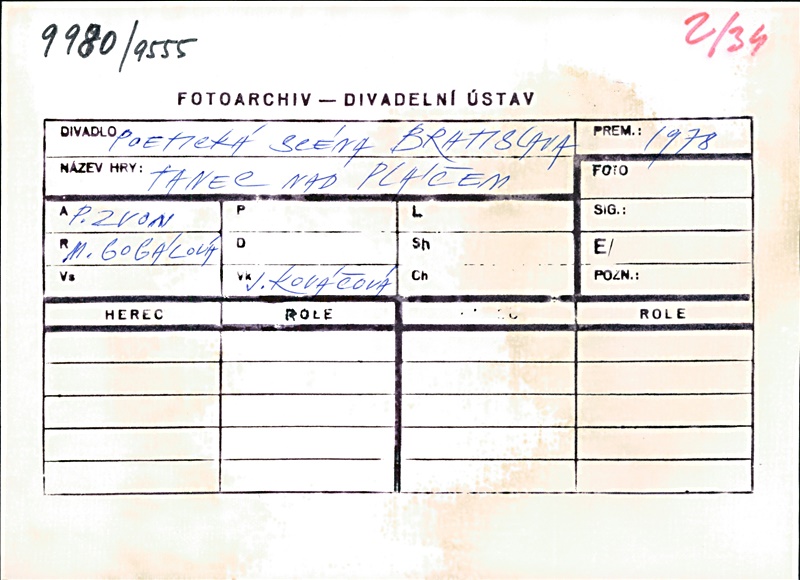 9980/9555
2/34
FOTOARCHIV — DIVADELNÍ ÚSTAV
DIVADLO POETICKÁ SCÉNA BRATISLAVA
PREM.: 1978
NÁZEV HRY: TANEC NAD PLAČEM
FOTO
A P. ZVON
P
L
SIG.:
R M. GOGÁLOVÁ
D
Sh
E/
Vs
Vk J. KOVÁČOVÁ
Ch
POZN.:
HEREC
ROLE
ROLE